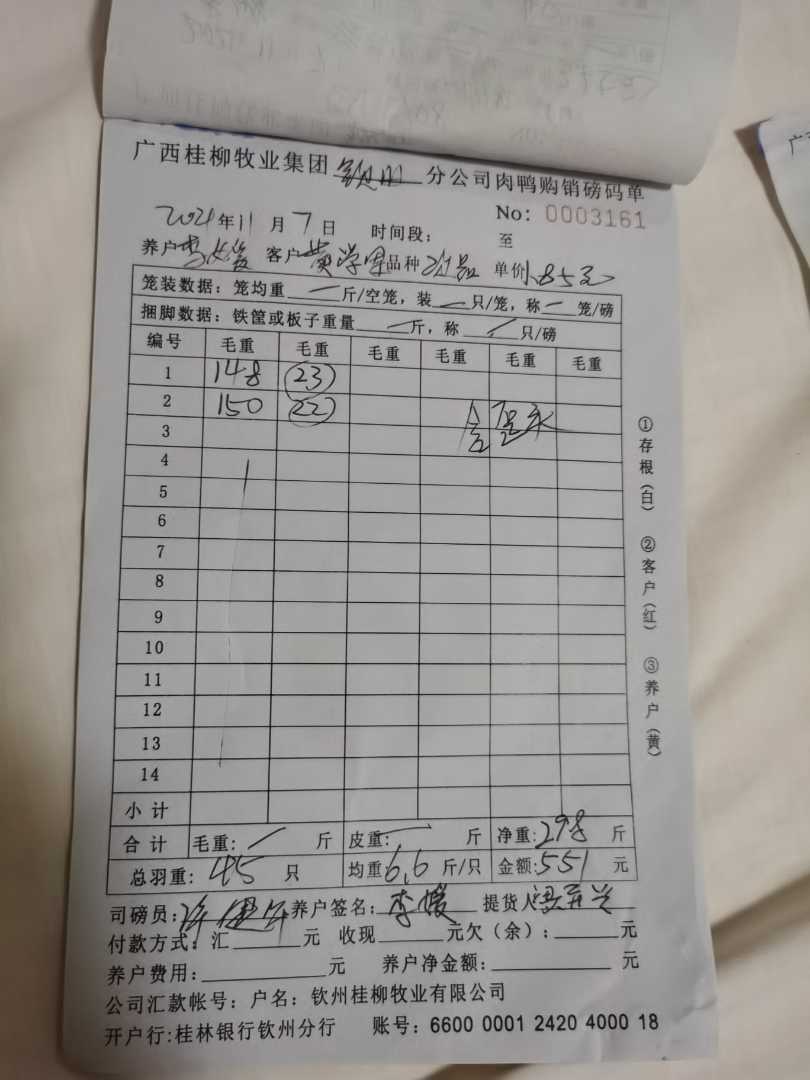 广西桂柳牧业集团 钦州 分公司肉鸭购销磅码单
No: 0003161
2021年11月7日 时间段: 至
养户 李 客户 黄学军 品种 次品 单价 1.85元
笼装数据: 笼均重 一 斤/空笼, 装 一 只/笼, 称 一 笼/磅
捆脚数据: 铁筐或板子重量 一 斤, 称 / 只/磅
编号 毛重 毛重 毛重 毛重 毛重 毛重
1 148 23
2 150 22
3
4
5
6
7
8
9
10
11
12
13
14
小计
合计 毛重: / 斤 皮重: 一 斤 净重: 298 斤
总羽重: 45 只 均重 6.6 斤/只 金额: 551 元
司磅员: 养户签名: 李媛 提货人
付款方式: 汇 元 收现 元欠(余): 元
养户费用: 元 养户净金额: 元
公司汇款帐号: 户名: 钦州桂柳牧业有限公司
开户行:桂林银行钦州分行 账号: 6600 0001 2420 4000 18
①存根(白) ②客户(红) ③养户(黄)